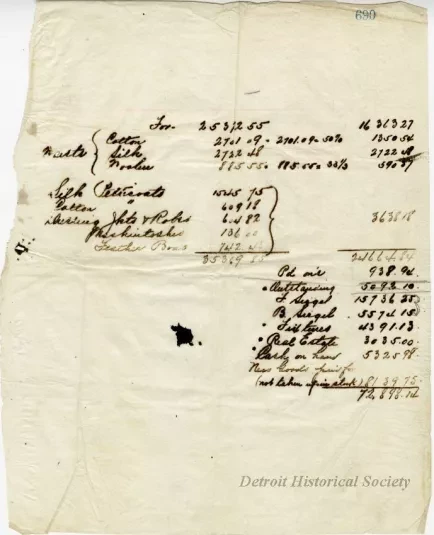 690
For. 25372 55 1636327
Cotton 2701 09 - 2701.09 - 50% 1350 54
Waists Silk 2722 48 2722 48
Woolen 885.55 - 885.55 - 33⅓ 590 37
Silk Petticoats 1545 75
Cotton " 609 18
Dressing Jkts & Robes 604 82 363818
Mackintoshes 136 00
Feather Boas 742 43
35369 83 24664.84
Pd on 938.94
Outstanding 5092 10
F Siegel 15736 25
B Siegel 5574 15
Fixtures 4391.13
Real Estate 3035.00
Cash on hand 5325 98
New Goods paid for
(not taken up in stock) 8139 75
72,898.14
Detroit Historical Society